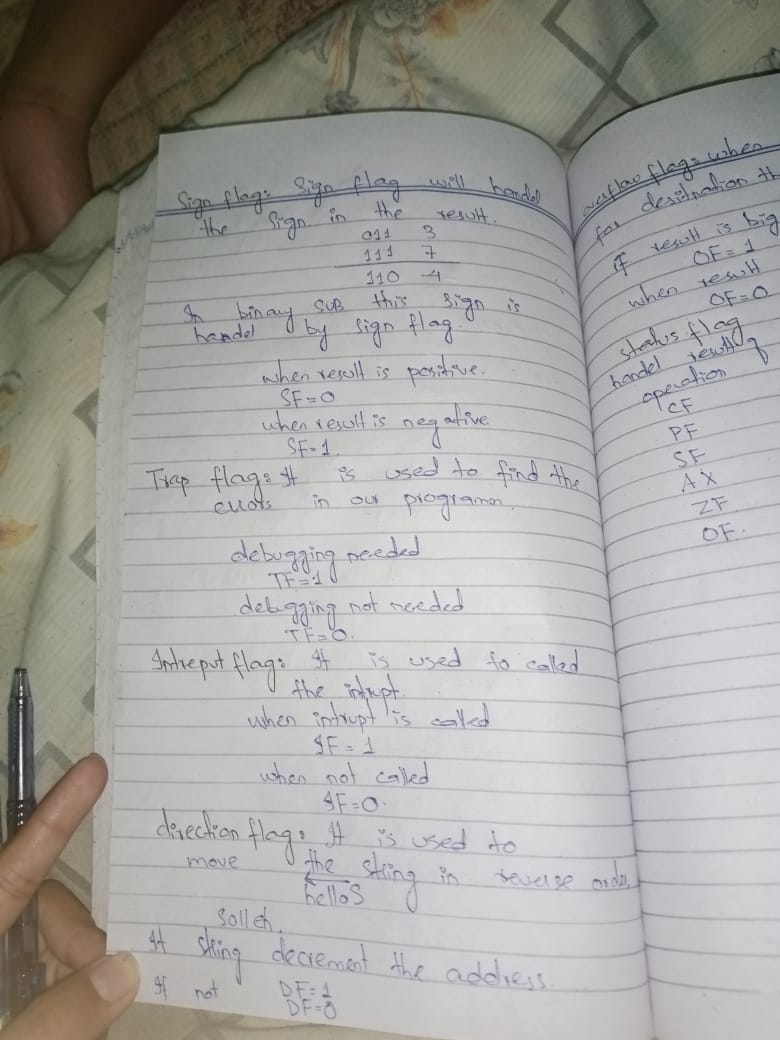 Sign flag: Sign flag will handel
the Sign in the result.
011 3
111 7
110 -4
In binay SUB this sign is
handel by sign flag.
when result is positive.
SF=0
when result is negative
SF=1.
Trap flag: It is used to find the
errors in our programm.
debugging needed
TF=1
debugging not needed
TF=0.
Intreput flag: It is used to called
the intrupt.
when intrupt is called
IF=1
when not called
IF=0.
direction flag: It is used to
move the string in reverse order
helloS
Solleh.
It string decrement the address.
If not DF=1
DF=0
overflow flag: when
for desitnation th
if result is big
OF=1
when result
OF=0
status flag
handel result of
operation
CF
PF
SF
AX
ZF
OF.